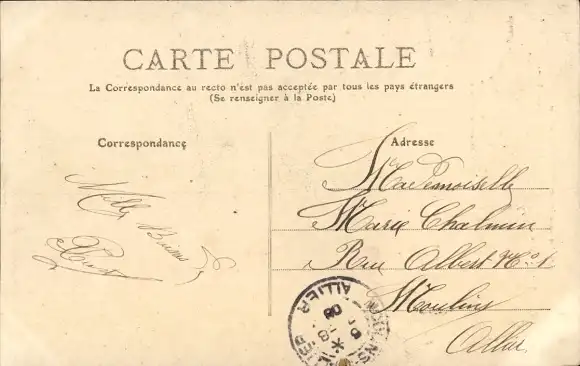 CARTE POSTALE
La Correspondance au recto n'est pas acceptée par tous les pays étrangers
(Se renseigner à la Poste)
Correspondance
Adresse
Mademoiselle
Marie Chalmin
Rue Albert No 1
Moulins
Allier
Mille
ALLIER